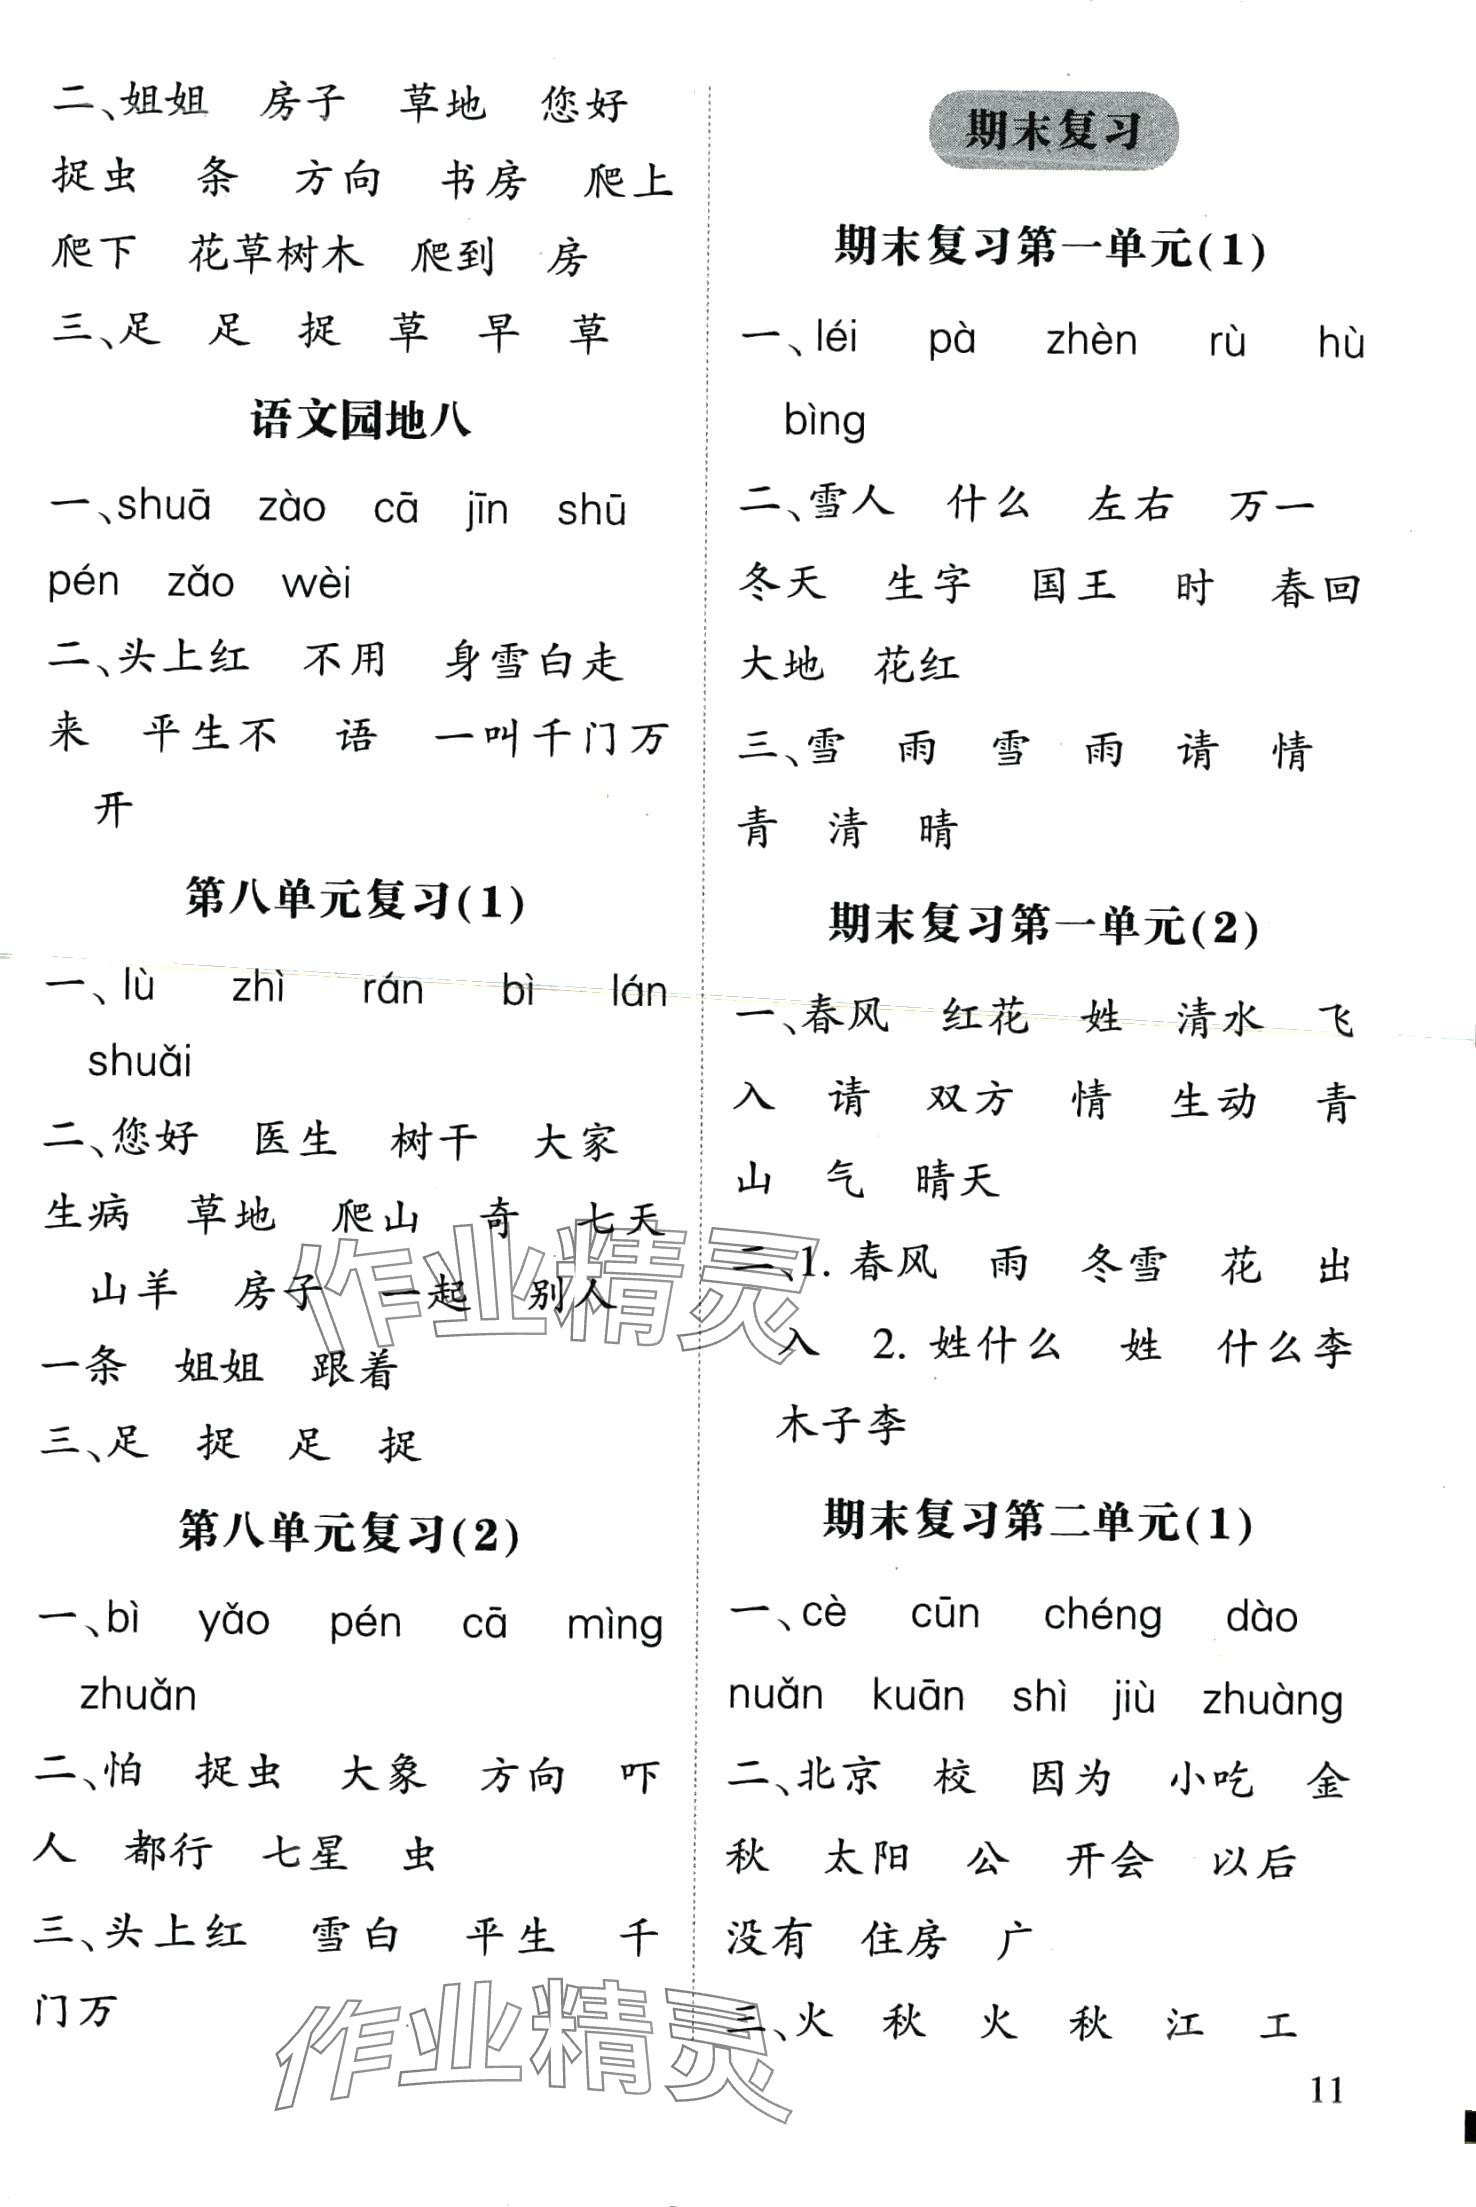 二、姐姐 房子 草地 您好
捉虫 条 方向 书房 爬上
爬下 花草树木 爬到 房
三、足 足 捉 草 早 草
语文园地八
一、shuā zào cā jīn shū
pén zǎo wèi
二、头上红 不用 身雪白走
来 平生不 语 一叫千门万
开
第八单元复习(1)
一、lù zhì rán bì lán
shuǎi
二、您好 医生 树干 大家
生病 草地 爬山 奇 七天
山羊 房子 一起 别人
一条 姐姐 跟着
三、足 捉 足 捉
第八单元复习(2)
一、bì yǎo pén cā mìng
zhuǎn
二、怕 捉虫 大象 方向 吓
人 都行 七星 虫
三、头上红 雪白 平生 千
门万
期末复习
期末复习第一单元(1)
一、léi pà zhèn rù hù
bìng
二、雪人 什么 左右 万一
冬天 生字 国王 时 春回
大地 花红
三、雪 雨 雪 雨 请 情
青 清 晴
期末复习第一单元(2)
一、春风 红花 姓 清水 飞
入 请 双方 情 生动 青
山 气 晴天
二、1. 春风 雨 冬雪 花 出
入 2. 姓什么 姓 什么李
木子李
期末复习第二单元(1)
一、cè cūn chéng dào
nuǎn kuān shì jiù zhuàng
二、北京 校 因为 小吃 金
秋 太阳 公 开会 以后
没有 住房 广
三、火 秋 火 秋 江 工
11
作业精灵
作业精灵